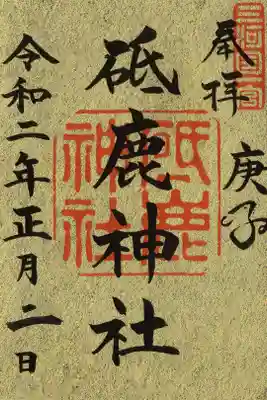 奉拝
庚子
砥鹿神社
令和二年正月二日
三河國一宮
砥鹿神社